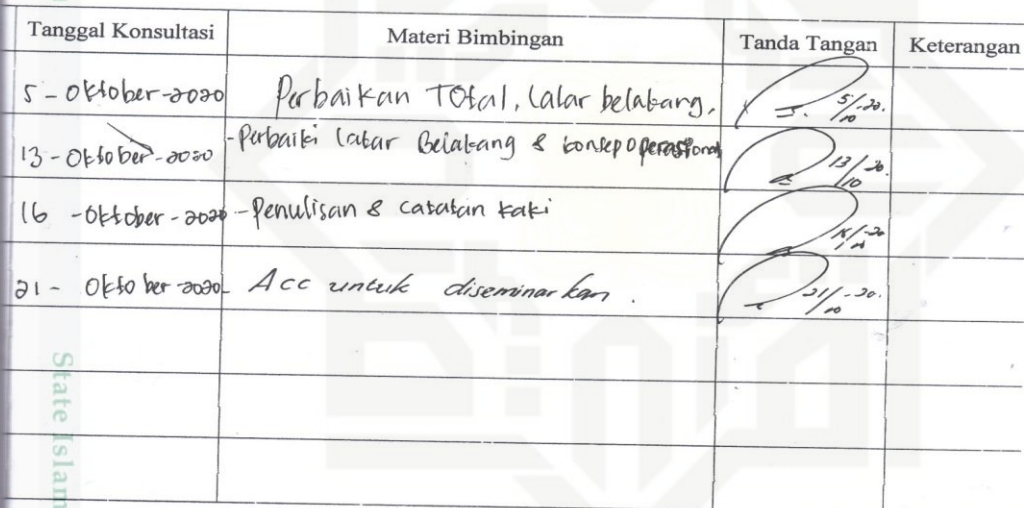 Tanggal Konsultasi Materi Bimbingan Tanda Tangan Keterangan
5 - Oktober - 2020 Perbaikan Total, latar belakang, 5/10 -20.
13 - Oktober - 2020 - Perbaiki latar Belakang & konsep operasional 13/10 -20.
16 - Oktober - 2020 - Penulisan & catatan kaki
21 - Oktober - 2020 - Acc untuk diseminarkan. 21/10 -20.
State Islam